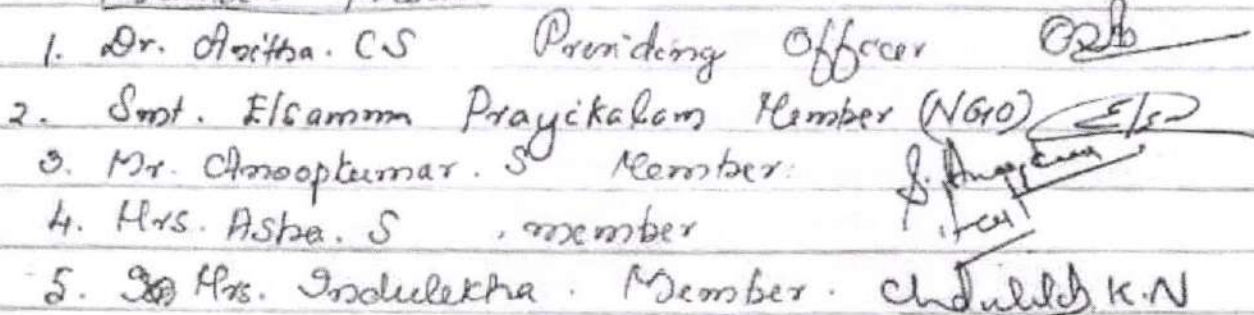 1. Dr. Anitha. CS Presiding Officer
2. Smt. Elsamma Prayikalam Member (NGO) Els
3. Mr. Anoopkumar. S Member. S. Anoopkumar
4. Mrs. Asha. S . member
5. Mrs. Indulekha. Member. Indulekh K.N